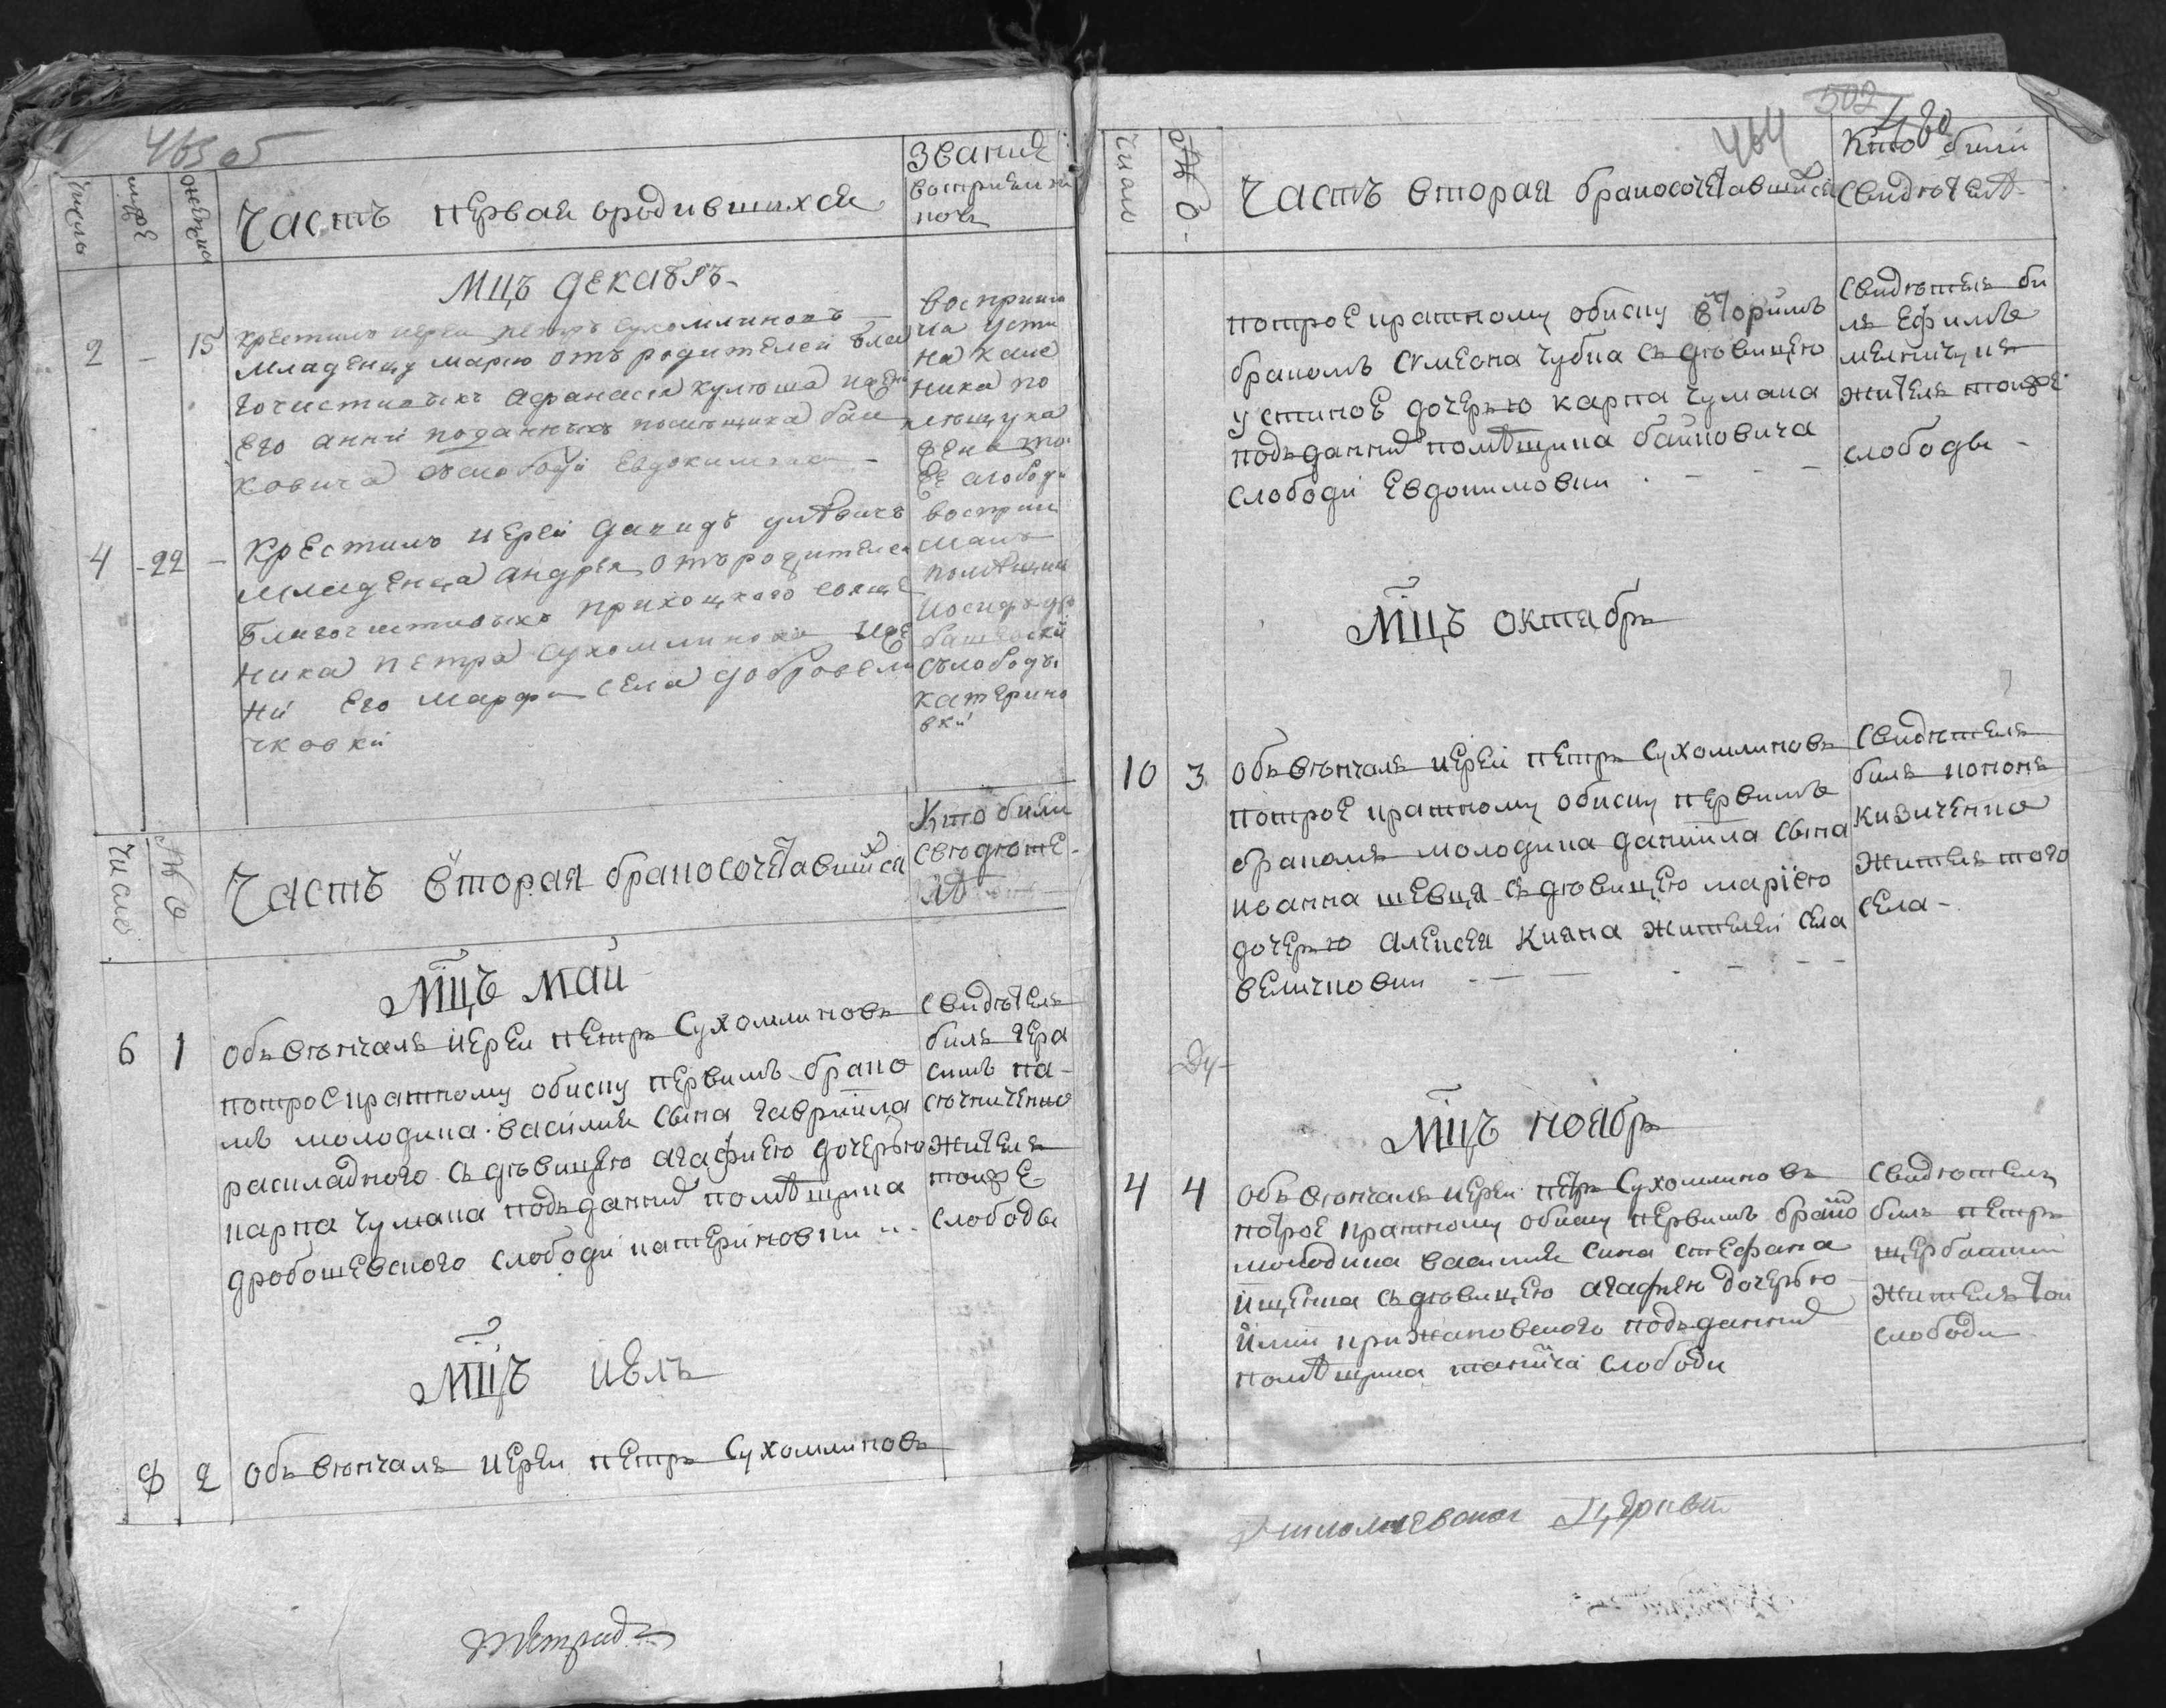 463 об
Число
мужє
женъска
Часть первая ородившихся
Звание
восприемни
ковъ
Мцъ декабръ
2 - 15 Крестилъ иереи петръ сухомлиновъ
младенцу марию отъ родителей бла
гочестивыхъ афанасія кулюша
Его анни поданныхъ помѣщика бай
ковича слободи Евдокимовки
восприим
на усти
на
ника по
мѣщука
жена то
ее слободи
4 - 22 - Крестилъ иереи давидъ
младенца андрея отъ родителеи
благочестивыхъ приходцкого свяще
ника петра сухомлинова
ни Его марфи села доброве
чковки
восприи
малъ
помѣщик
иосифъ дро
башевский
слободы
катерино
вки
Число
№ О
Часть вторая бракосочетавшихся
Кто били
свѣдѣте
лѣ
Мцъ май
6 1 объвѣнчалъ иереи петръ Сухомлиновъ
потроекратному обиску первимъ брако
мъ молодика василия сына гавриила
раскладного съ дѣвицею агафиею дочерью
карпа чумака подъданних помѣщика
дробошевского слободи катериновки
свидѣтель
билъ гера
симъ па
сѣчниченко
жителъ
тоижє
слободы
Мцъ иѣлъ
8 2 объвѣнчалъ иереи петръ Сухомлиновъ
тетрадь
502
480
464
Число
№ О
Часть вторая бракосочетавшихся
Кто били
свидѣтелѣ
потроекратному обиску вторимъ
бракомъ симеона чубка съ дѣвицею
устиноє дочерью карпа чумака
подъданних помѣщика байковича
слободи Евдокимовки
свидѣтель би
лъ Ефимъ
мелничукъ
жителъ тоижє
слободы
Мцъ октябръ
10 3 объвѣнчалъ иереи петръ Сухомлиновъ
потроє кратному обиску первимъ
бракомъ молодика даниила сына
иоанна шевця съ дѣвицею маріею
дочерью алексея кияна жителеи села
величковки
свидѣтель
билъ кононъ
кизиченко
жителъ того
села
Мцъ ноябръ
4 4 объвѣнчалъ иереи петръ Сухомлиновъ
потроє кратному обиску первимъ брако
молодика василия сина стефана
ищенка съ дѣвицею агафиею дочерью
илии крижановского подъданних
помѣщика слободи
свидѣтель
билъ петръ
щербацкий
жителъ той
слободи
церкви